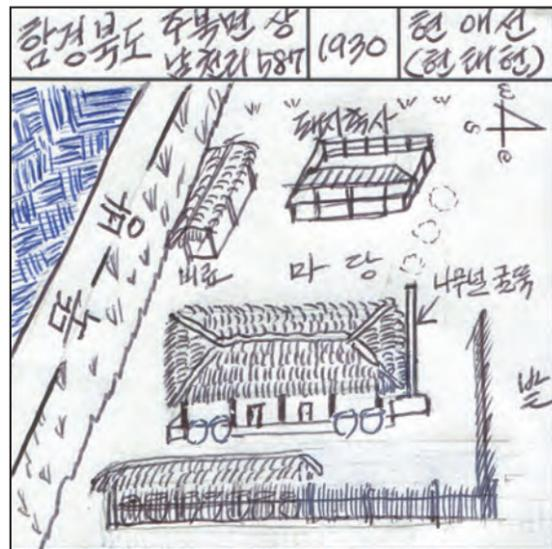 함경북도
주북면 상
남천리 587
1930
현애선
(현태현)
돼지축사
w
s
e
비료
마당
나무널 굴뚝
밭